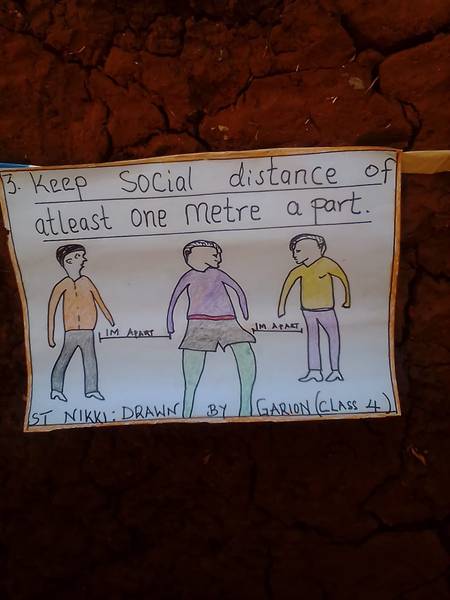 3. Keep Social distance of
atleast one metre a part.
1M APART
1M APART
ST NIKKI: DRAWN BY GARION (CLASS 4)